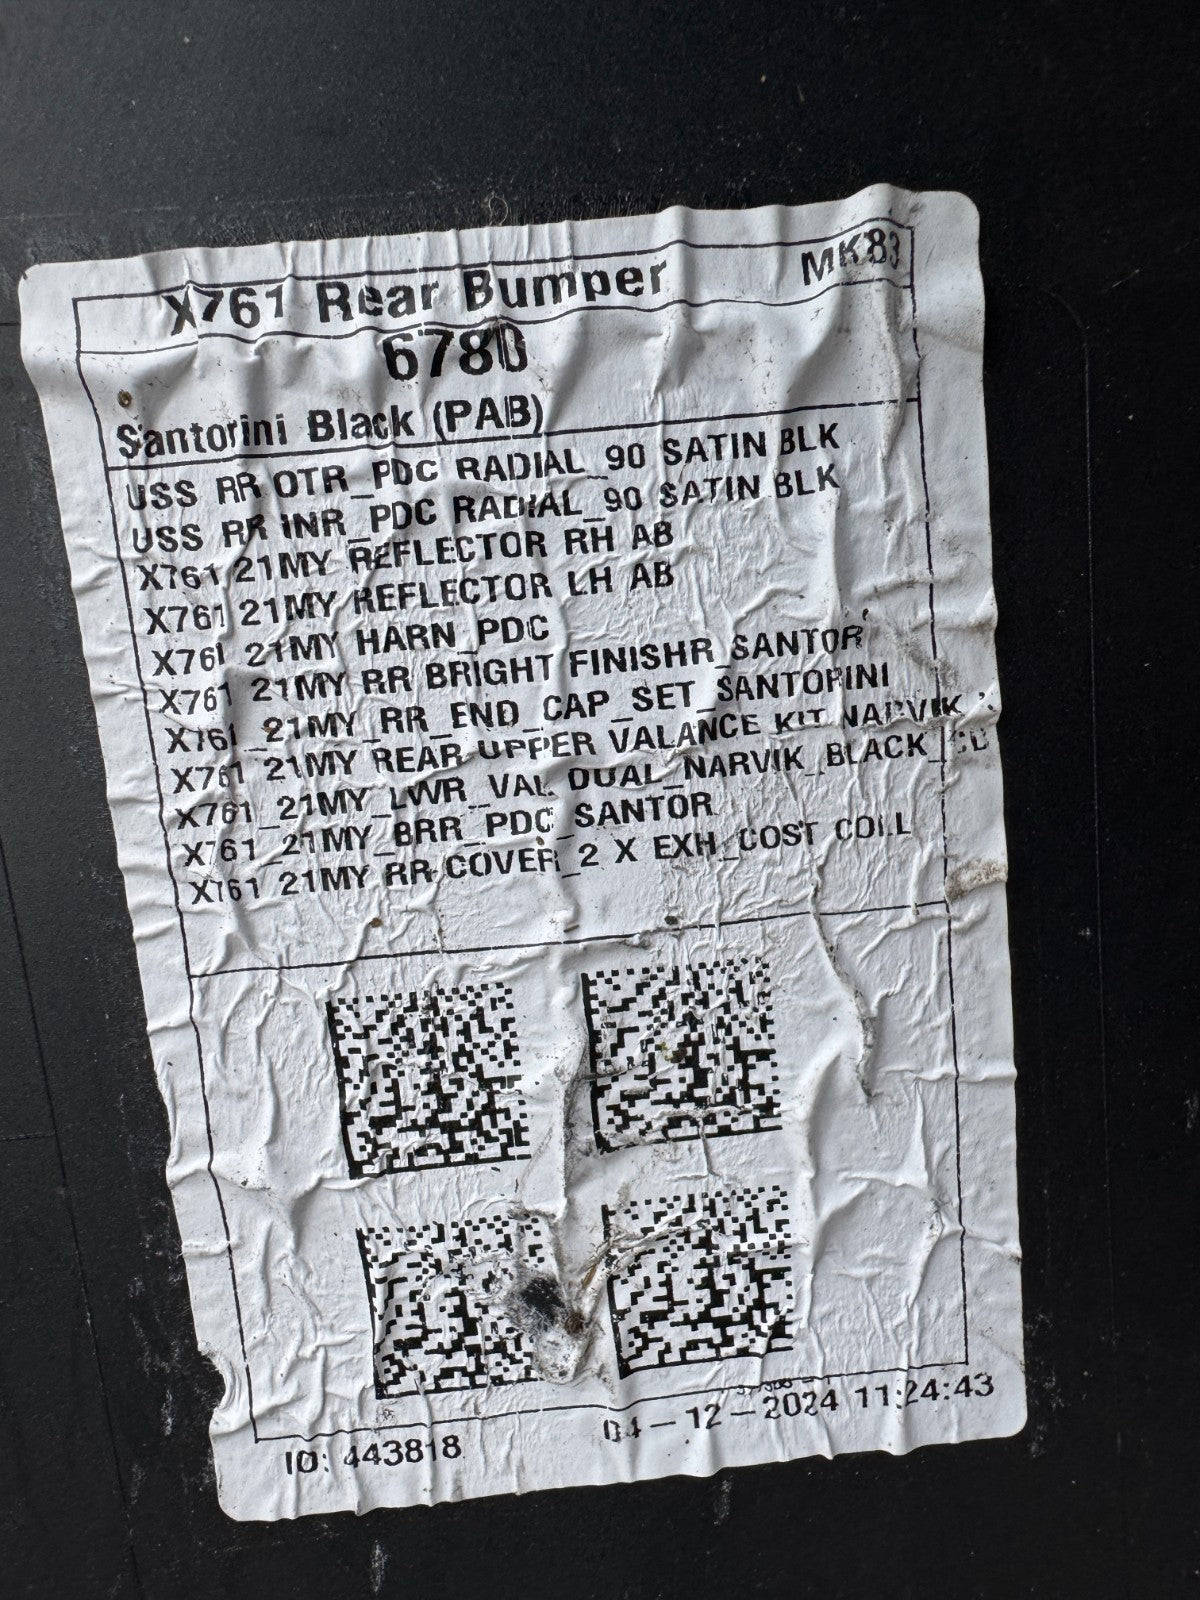 X761 Rear Bumper MK83
6780
Santorini Black (PAB)
USS RR OTR_PDC RADIAL_90 SATIN BLK
USS RR INR_PDC RADIAL_90 SATIN BLK
X761 21MY REFLECTOR RH AB
X761 21MY REFLECTOR LH AB
X761 21MY HARN_PDC
X761 21MY RR BRIGHT FINISHR_SANTOR
X761_21MY_RR_END_CAP_SET_SANTORINI
X761 21MY REAR UPPER VALANCE KIT NARVIK
X761_21MY_LWR_VAL DUAL_NARVIK_BLACK
X761_21MY_BRR_PDC_SANTOR
X761 21MY RR COVER_2 X EXH_COST COLL
ID: 443818
04-12-2024 11:24:43